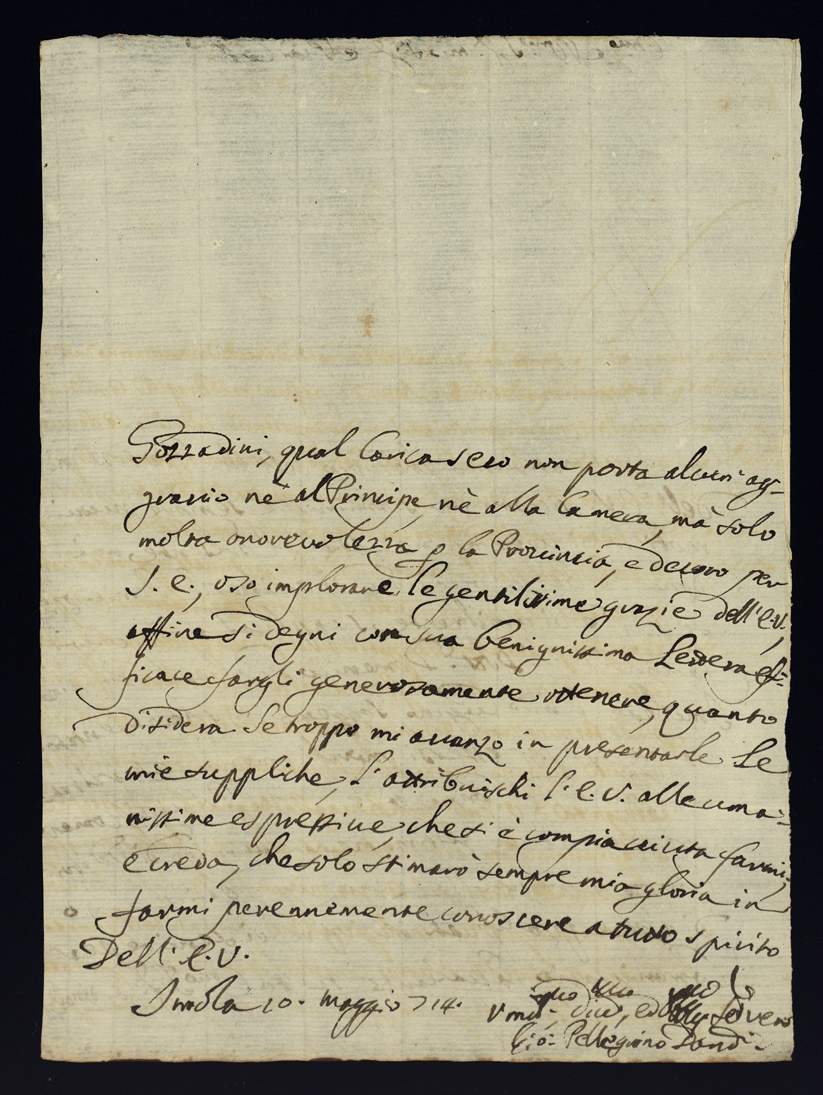 Pozzadini, qual Carica sero non porta alcun ag-
gravio nè al Principe, nè alla Camera, mà solo
molta onorevolezza p la Provincia, e decoro per
S. E., oso implorare le gentilissime grazie dell'E.V.,
affine si degni con sua benignissima Lettera ef=
ficace fargli generosamente ottenere, quanto
disidera. Se troppo mi avanzo in presentarle le
mie suppliche, l'attribuischi l'E.V. alle uma=
nissime espressive, che si è compiaciuta farmi,
e creda, che solo stimarò sempre mia gloria in
farmi perennemente conoscere a tutto spirito
Dell'E.V.
Imola 10. Maggio 714.
Vmo, Dmo, ed Servo
Gio: Pellegrino Dandi